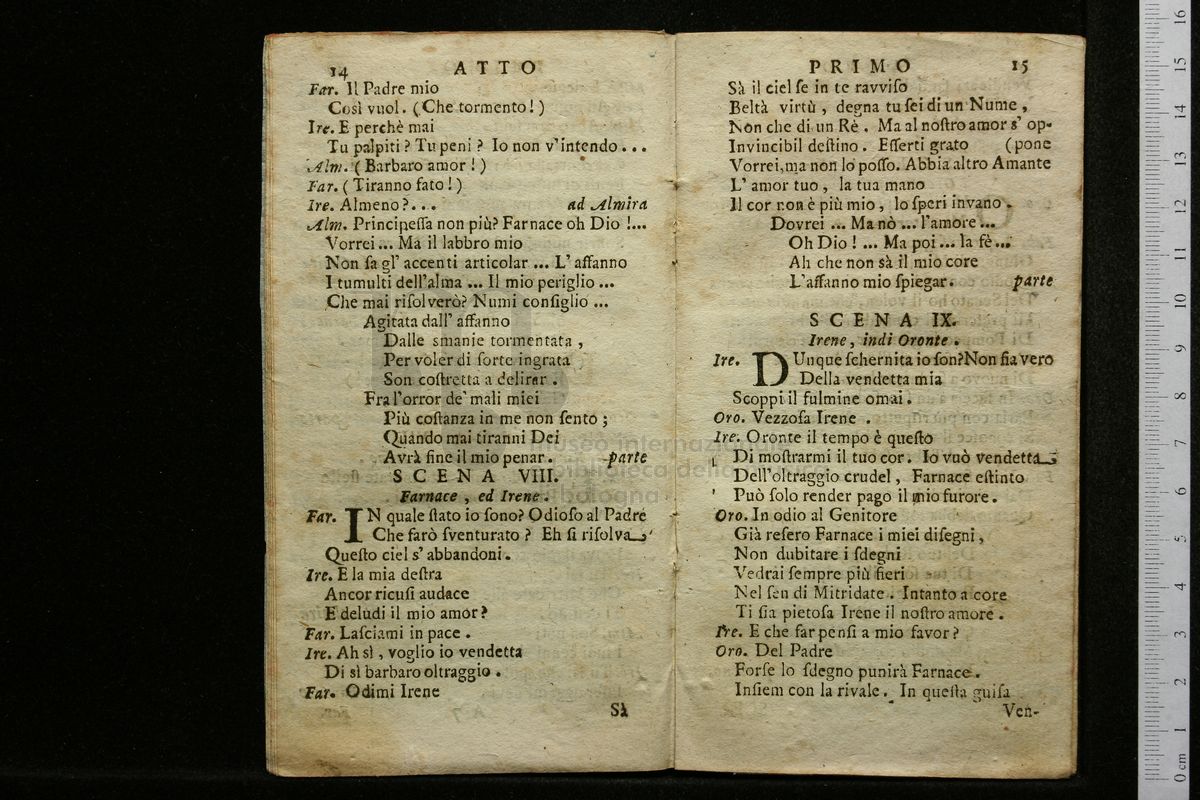 14 ATTO
Far. Il Padre mio
Così vuol. (Che tormento!)
Ire. E perchè mai
Tu palpiti? Tu peni? Io non v'intendo...
Alm. (Barbaro amor!)
Far. (Tiranno fato!)
Ire. Almeno?... ad Almira
Alm. Principeſſa non più? Farnace oh Dio!...
Vorrei... Ma il labbro mio
Non ſa gl' accenti articolar... L' affanno
I tumulti dell'alma... Il mio periglio...
Che mai riſolverò? Numi conſiglio...
Agitata dall' affanno
Dalle smanie tormentata,
Per voler di ſorte ingrata
Son coſtretta a delirar.
Fra l'orror de' mali miei
Più coſtanza in me non ſento;
Quando mai tiranni Dei
Avrà fine il mio penar. parte
SCENA VIII.
Farnace, ed Irene.
Far. IN quale ſtato io ſono? Odioſo al Padre
Che farò ſventurato? Eh ſi riſolva
Queſto ciel s' abbandoni.
Ire. E la mia deſtra
Ancor ricuſi audace
E deludi il mio amor?
Far. Laſciami in pace.
Ire. Ah sì, voglio io vendetta
Di sì barbaro oltraggio.
Far. Odimi Irene
Sà
PRIMO 15
Sà il ciel ſe in te ravviſo
Beltà virtù, degna tu ſei di un Nume,
Non che di un Rè. Ma al noſtro amor s' op-
Invincibil deſtino. Eſſerti grato (pone
Vorrei, ma non lo poſſo. Abbia altro Amante
L' amor tuo, la tua mano
Il cor non è più mio, lo ſperi invano.
Dovrei... Ma nò... l'amore...
Oh Dio!... Ma poi... la fè...
Ah che non sà il mio core
L'affanno mio ſpiegar. parte
SCENA IX.
Irene, indi Oronte.
Ire. DUnque ſchernita io ſon? Non ſia vero
Della vendetta mia
Scoppi il fulmine omai.
Oro. Vezzoſa Irene.
Ire. Oronte il tempo è queſto
Di moſtrarmi il tuo cor. Io vuò vendetta
Dell'oltraggio crudel, Farnace eſtinto
Può ſolo render pago il mio furore.
Oro. In odio al Genitore
Già reſero Farnace i miei diſegni,
Non dubitare i ſdegni
Vedrai ſempre più fieri
Nel ſen di Mitridate. Intanto a core
Ti ſia pietoſa Irene il noſtro amore.
Ire. E che far penſi a mio favor?
Oro. Del Padre
Forſe lo ſdegno punirà Farnace.
Inſiem con la rivale. In queſta guiſa
Ven-
museo internazionale
biblioteca della musica
bologna
0 cm 1 2 3 4 5 6 7 8 9 10 11 12 13 14 15 16